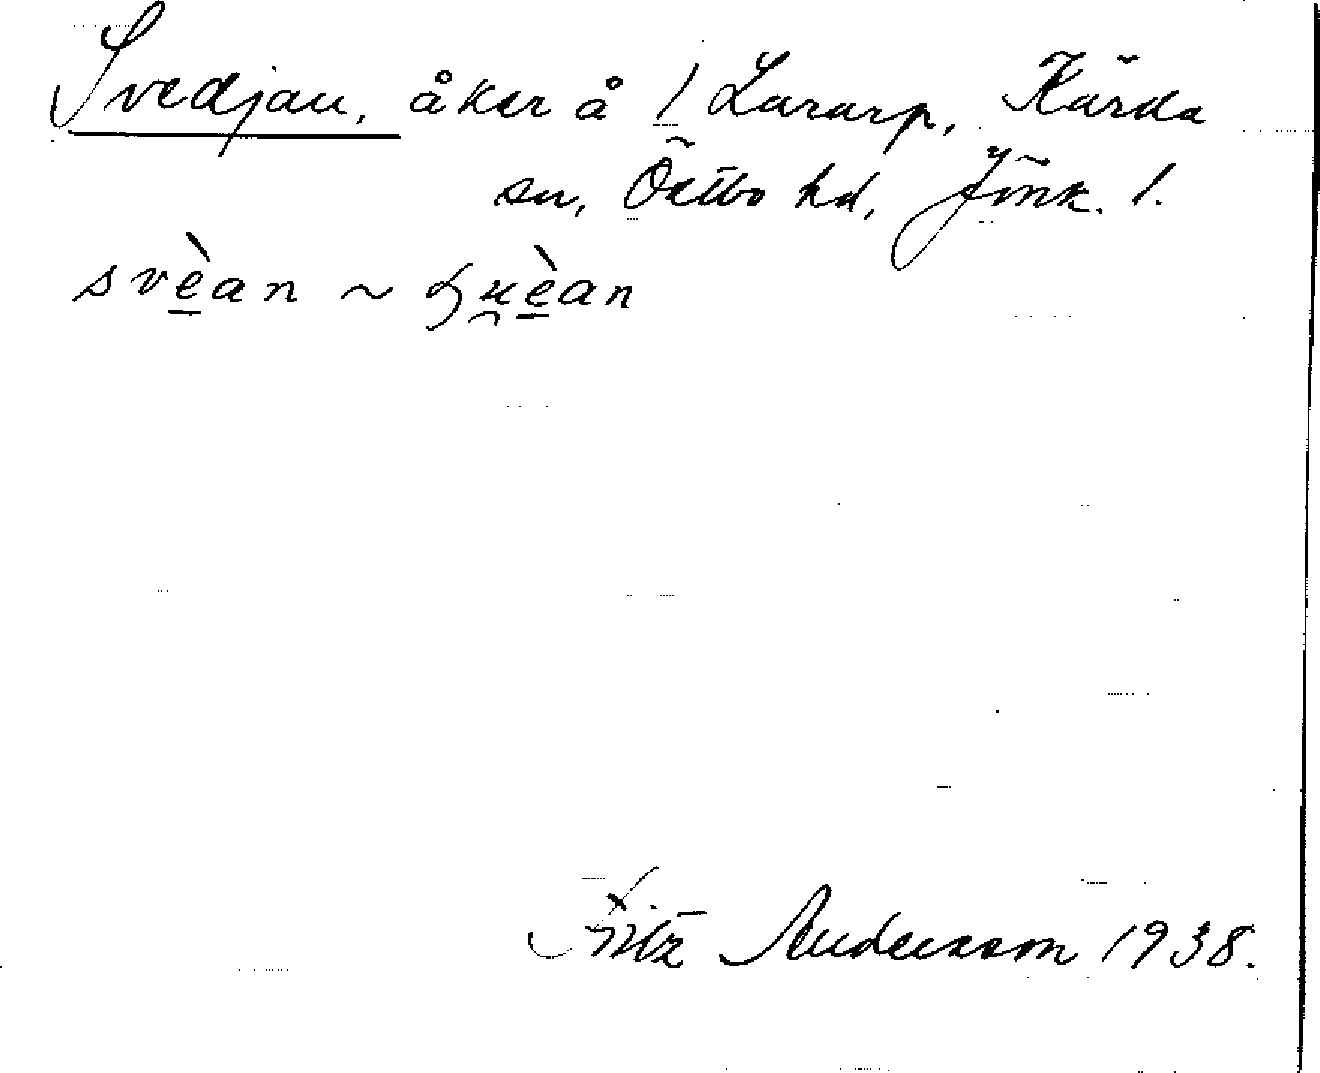 Svedjan, åker å 1 Lararp, Kärda
sn, Östbo hd, Jönk. l.
svè̱an ~
Fritz Andersson 1938.